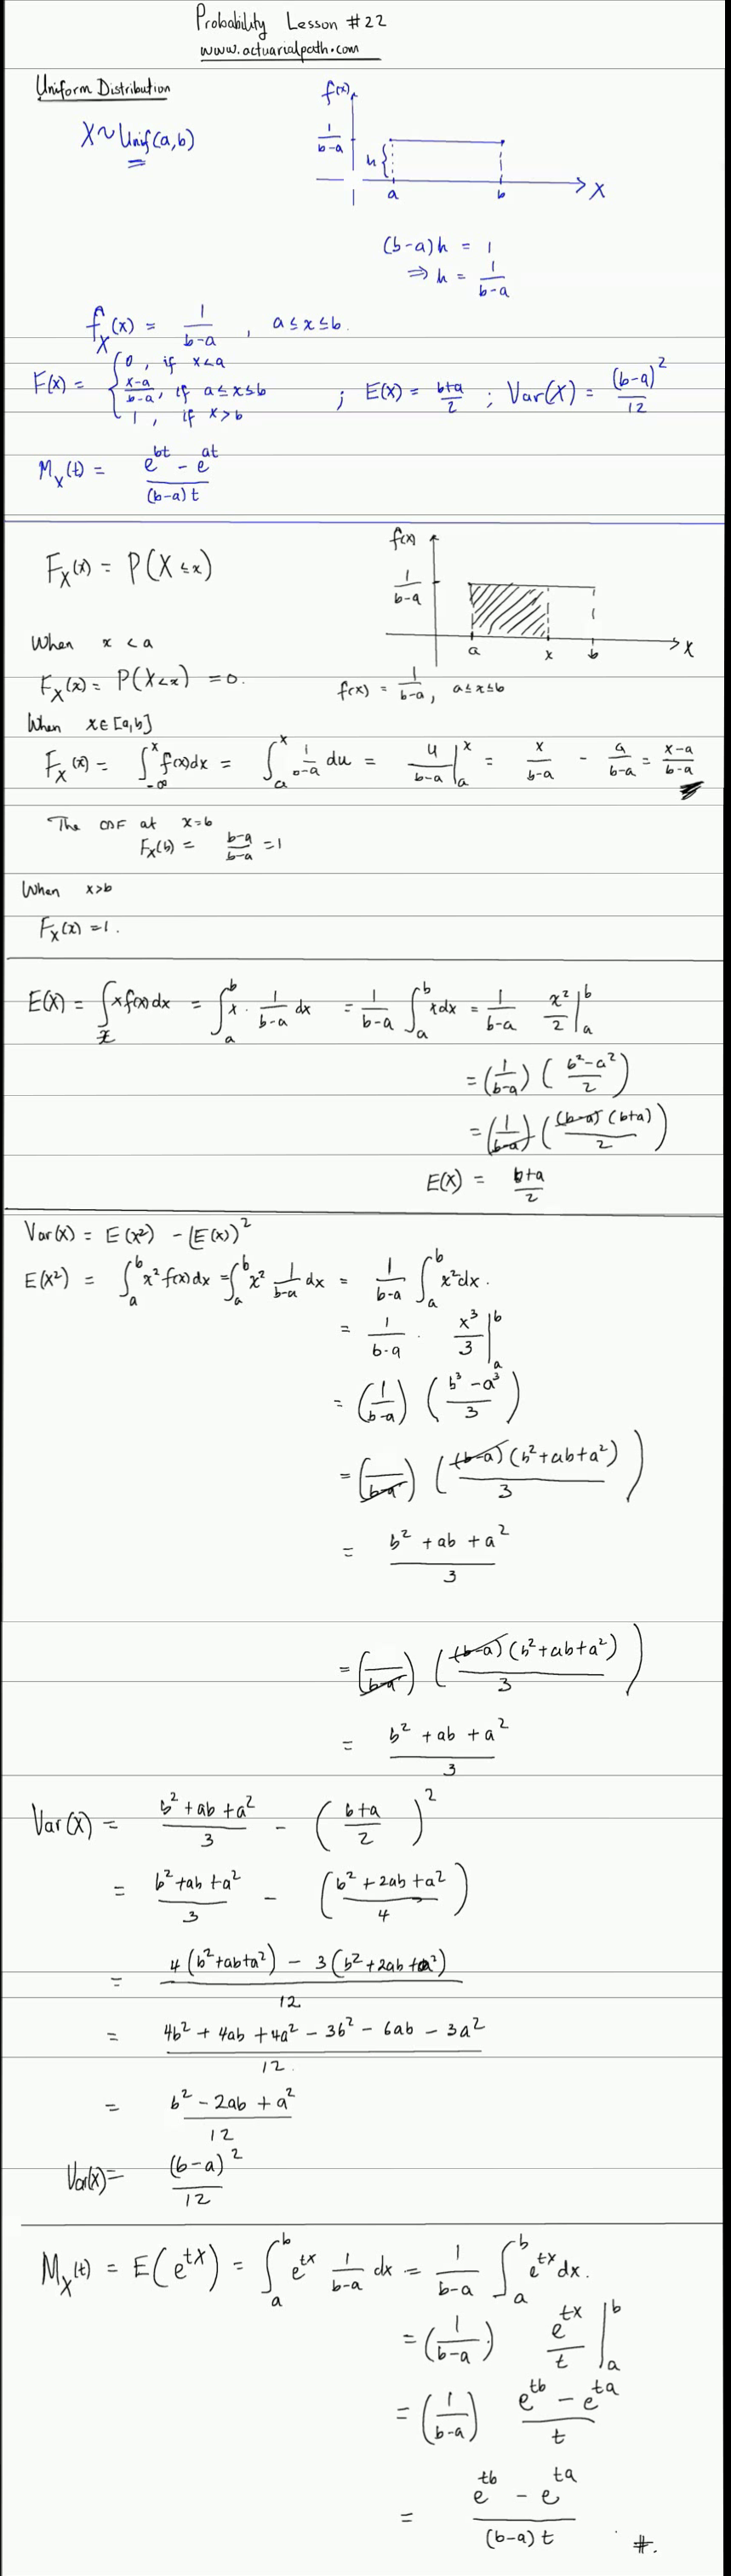 Probability Lesson #22
www.actuarialpath.com
Uniform Distribution
X ~ Unif(a,b)
f(x)
1/(b-a)
h {
a b
X
(b-a)h = 1
⇒ h = 1/(b-a)
f_X(x) = 1/(b-a) , a ≤ x ≤ b.
F(x) = { 0, if x<a
(x-a)/(b-a), if a ≤ x ≤ b
1, if x > b
; E(X) = (b+a)/2 ; Var(X) = (b-a)^2/12
M_X(t) = (e^{bt} - e^{at})/((b-a)t)
F_X(x) = P(X ≤ x)
f(x)
1/(b-a)
a x b
X
f(x) = 1/(b-a), a ≤ x ≤ b
When x < a
F_X(x) = P(X<x) = 0.
When x ∈ [a,b]
F_X(x) = ∫_{-∞}^{x} f(x)dx = ∫_a^x 1/(b-a) du = u/(b-a) |_a^x = x/(b-a) - a/(b-a) = (x-a)/(b-a)
The CDF at x=b
F_X(b) = (b-a)/(b-a) = 1
When x>b
F_X(x) = 1.
E(X) = ∫_x x f(x) dx = ∫_a^b x · 1/(b-a) dx = 1/(b-a) ∫_a^b x dx = 1/(b-a) x^2/2 |_a^b
= (1/(b-a)) ((b^2-a^2)/2)
= (1/(b-a)) ((b-a)(b+a)/2)
E(X) = (b+a)/2
Var(X) = E(X^2) - (E(X))^2
E(X^2) = ∫_a^b x^2 f(x) dx = ∫_a^b x^2 1/(b-a) dx = 1/(b-a) ∫_a^b x^2 dx.
= 1/(b-a) · x^3/3 |_a^b
= (1/(b-a)) ((b^3-a^3)/3)
= (1/(b-a)) ((b-a)(b^2+ab+a^2)/3)
= (b^2+ab+a^2)/3
= (1/(b-a)) ((b-a)(b^2+ab+a^2)/3)
= (b^2+ab+a^2)/3
Var(X) = (b^2+ab+a^2)/3 - ((b+a)/2)^2
= (b^2+ab+a^2)/3 - ((b^2+2ab+a^2)/4)
= (4(b^2+ab+a^2) - 3(b^2+2ab+a^2))/12
= (4b^2+4ab+4a^2-3b^2-6ab-3a^2)/12.
= (b^2-2ab+a^2)/12
Var(X) = (b-a)^2/12
M_X(t) = E(e^{tX}) = ∫_a^b e^{tx} 1/(b-a) dx = 1/(b-a) ∫_a^b e^{tx} dx.
= (1/(b-a)) e^{tx}/t |_a^b
= (1/(b-a)) (e^{tb} - e^{ta})/t
= (e^{tb} - e^{ta})/((b-a)t) #.